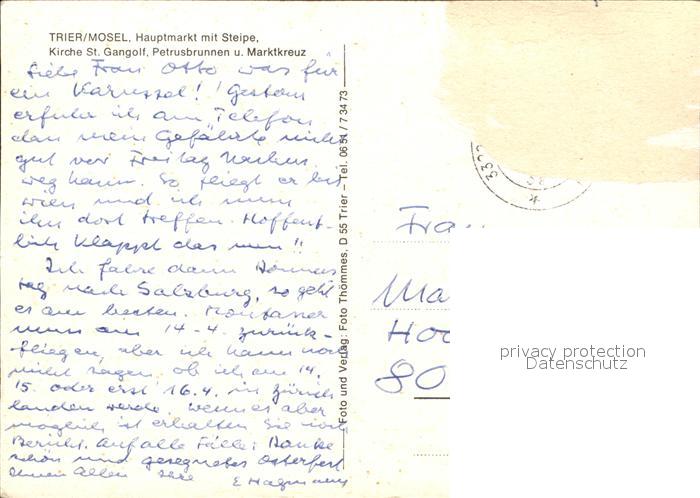 TRIER/MOSEL, Hauptmarkt mit Steipe,
Kirche St. Gangolf, Petrusbrunnen u. Marktkreuz
Liebe Frau Otto was für
ein Karussel! Gestern
erfuhr ich am Telefon
dass mein Gefährte nicht
gut vor Freitag
weg kann. So fliegt er bis
Wien und ich muss
ihn dort treffen. Hoffent-
lich klappt das nun!!
Ich fahre dann Donners
tag nach Salzburg, so geht
es am besten.
muss am 14-4. zurück-
fliegen, aber ich kann noch
nicht sagen ob ich am 14,
15. oder erst 16.4. in Zürich
landen werde. Wenn es aber
möglich ist erhalten Sie noch
Bericht. Auf alle Fälle: Danke
schön und gesegnetes Osterfest
Ihnen Allen Ihre E Hagmann
Foto und Verlag: Foto Thömmes, D 55 Trier – Tel. 06 51 / 7 34 73
Fra
Ma
Hoc
80
privacy protection
Datenschutz